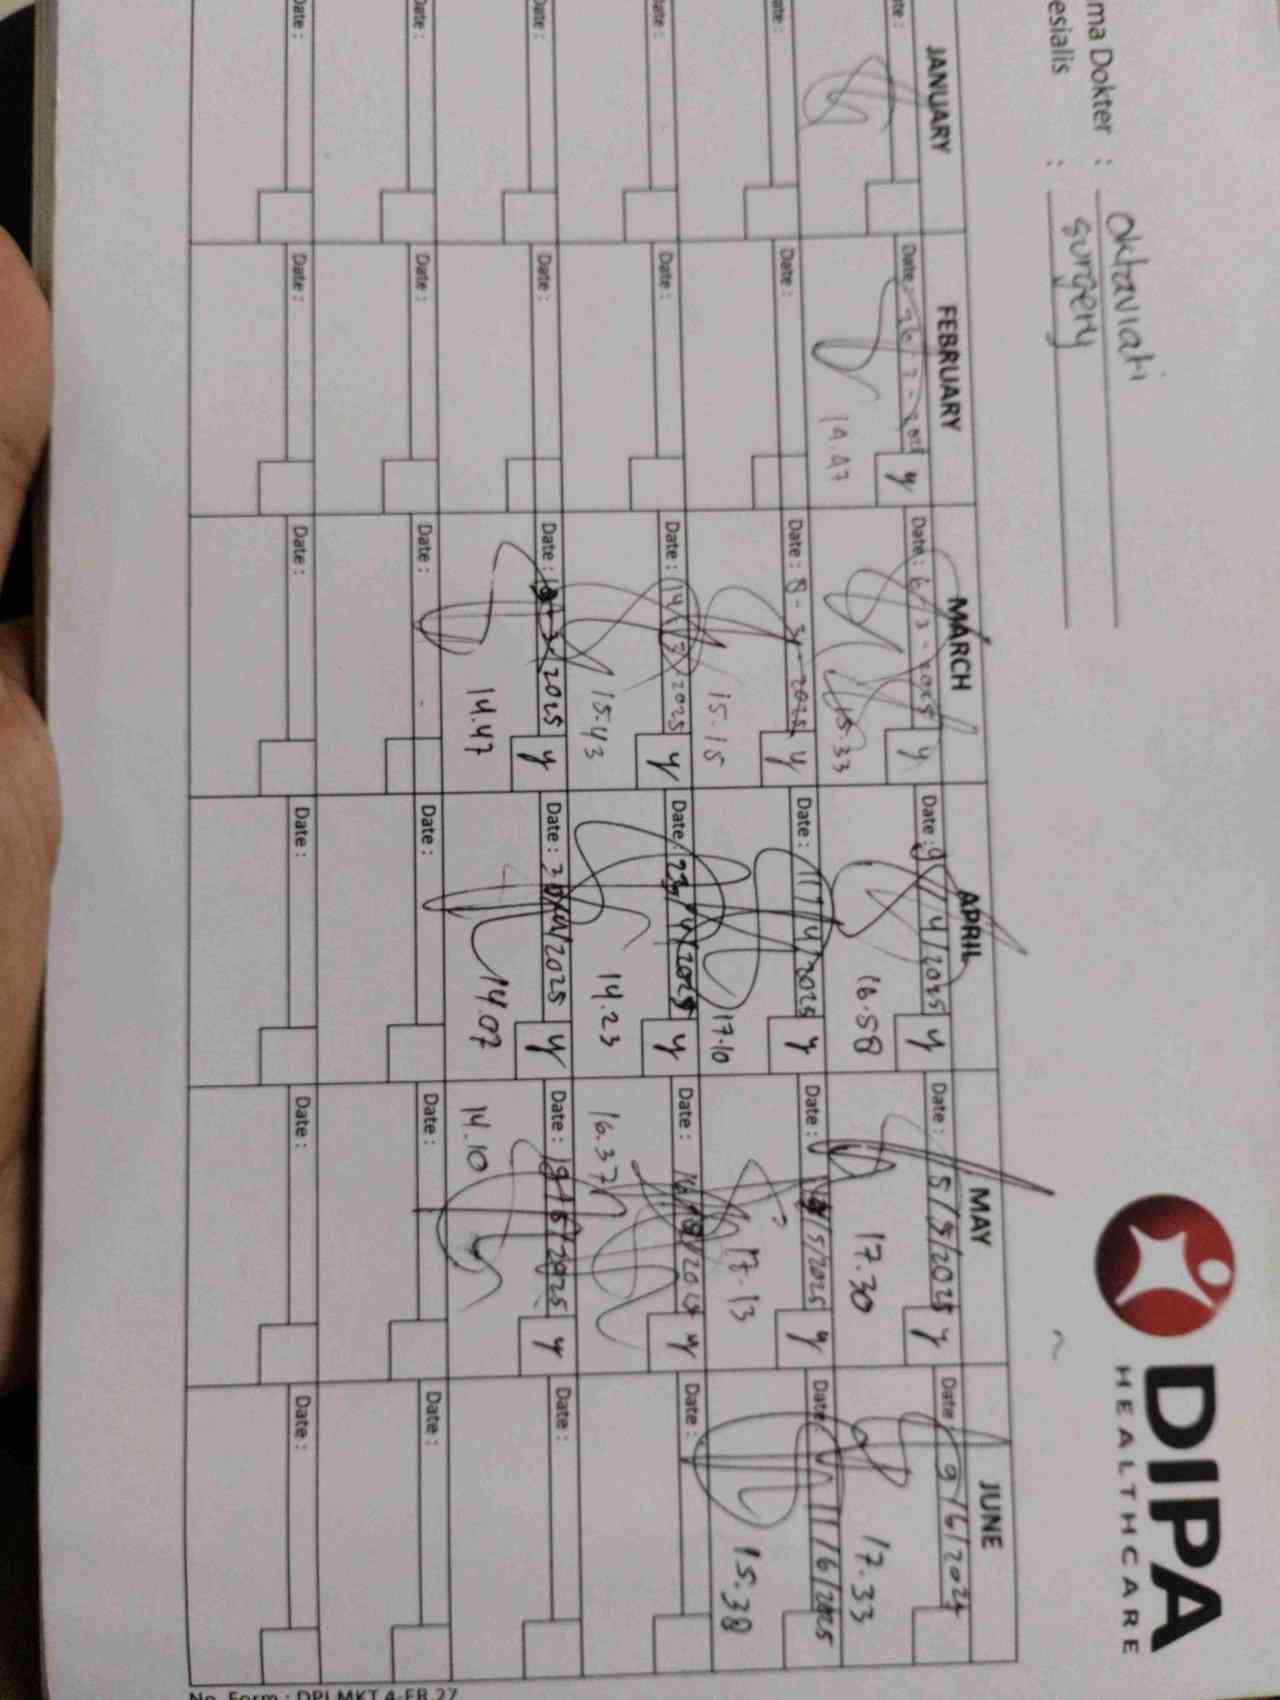 DIPA
HEALTHCARE
ma Dokter : Oktaviati
esialis : surgery
JANUARY FEBRUARY MARCH APRIL MAY JUNE
ate : Date : 26-2-2025 y Date : 6-3-2025 y Date : 9/4/2025 y Date : 5/5/2025 y Date 9/6/202
14.47 15.33 16.58 17.30 17.33
ate : Date : Date : 8-3-2025 y Date : 11/4/2025 y Date : /5/2025 y Date 11/6/2025
15.15 17.10 17.13 15.38
ate : Date : Date : 14/3/2025 y Date : 23/4/2025 y Date : y Date :
15.43 14.23 16.37
Date : Date : Date : 2025 y Date : /2025 y Date : 19/5/2025 y Date :
14.47 14.07 14.10
Date : Date : Date : Date : Date : Date :
Date : Date : Date : Date : Date : Date :
No. Form : DPI.MKT.4-FR.27